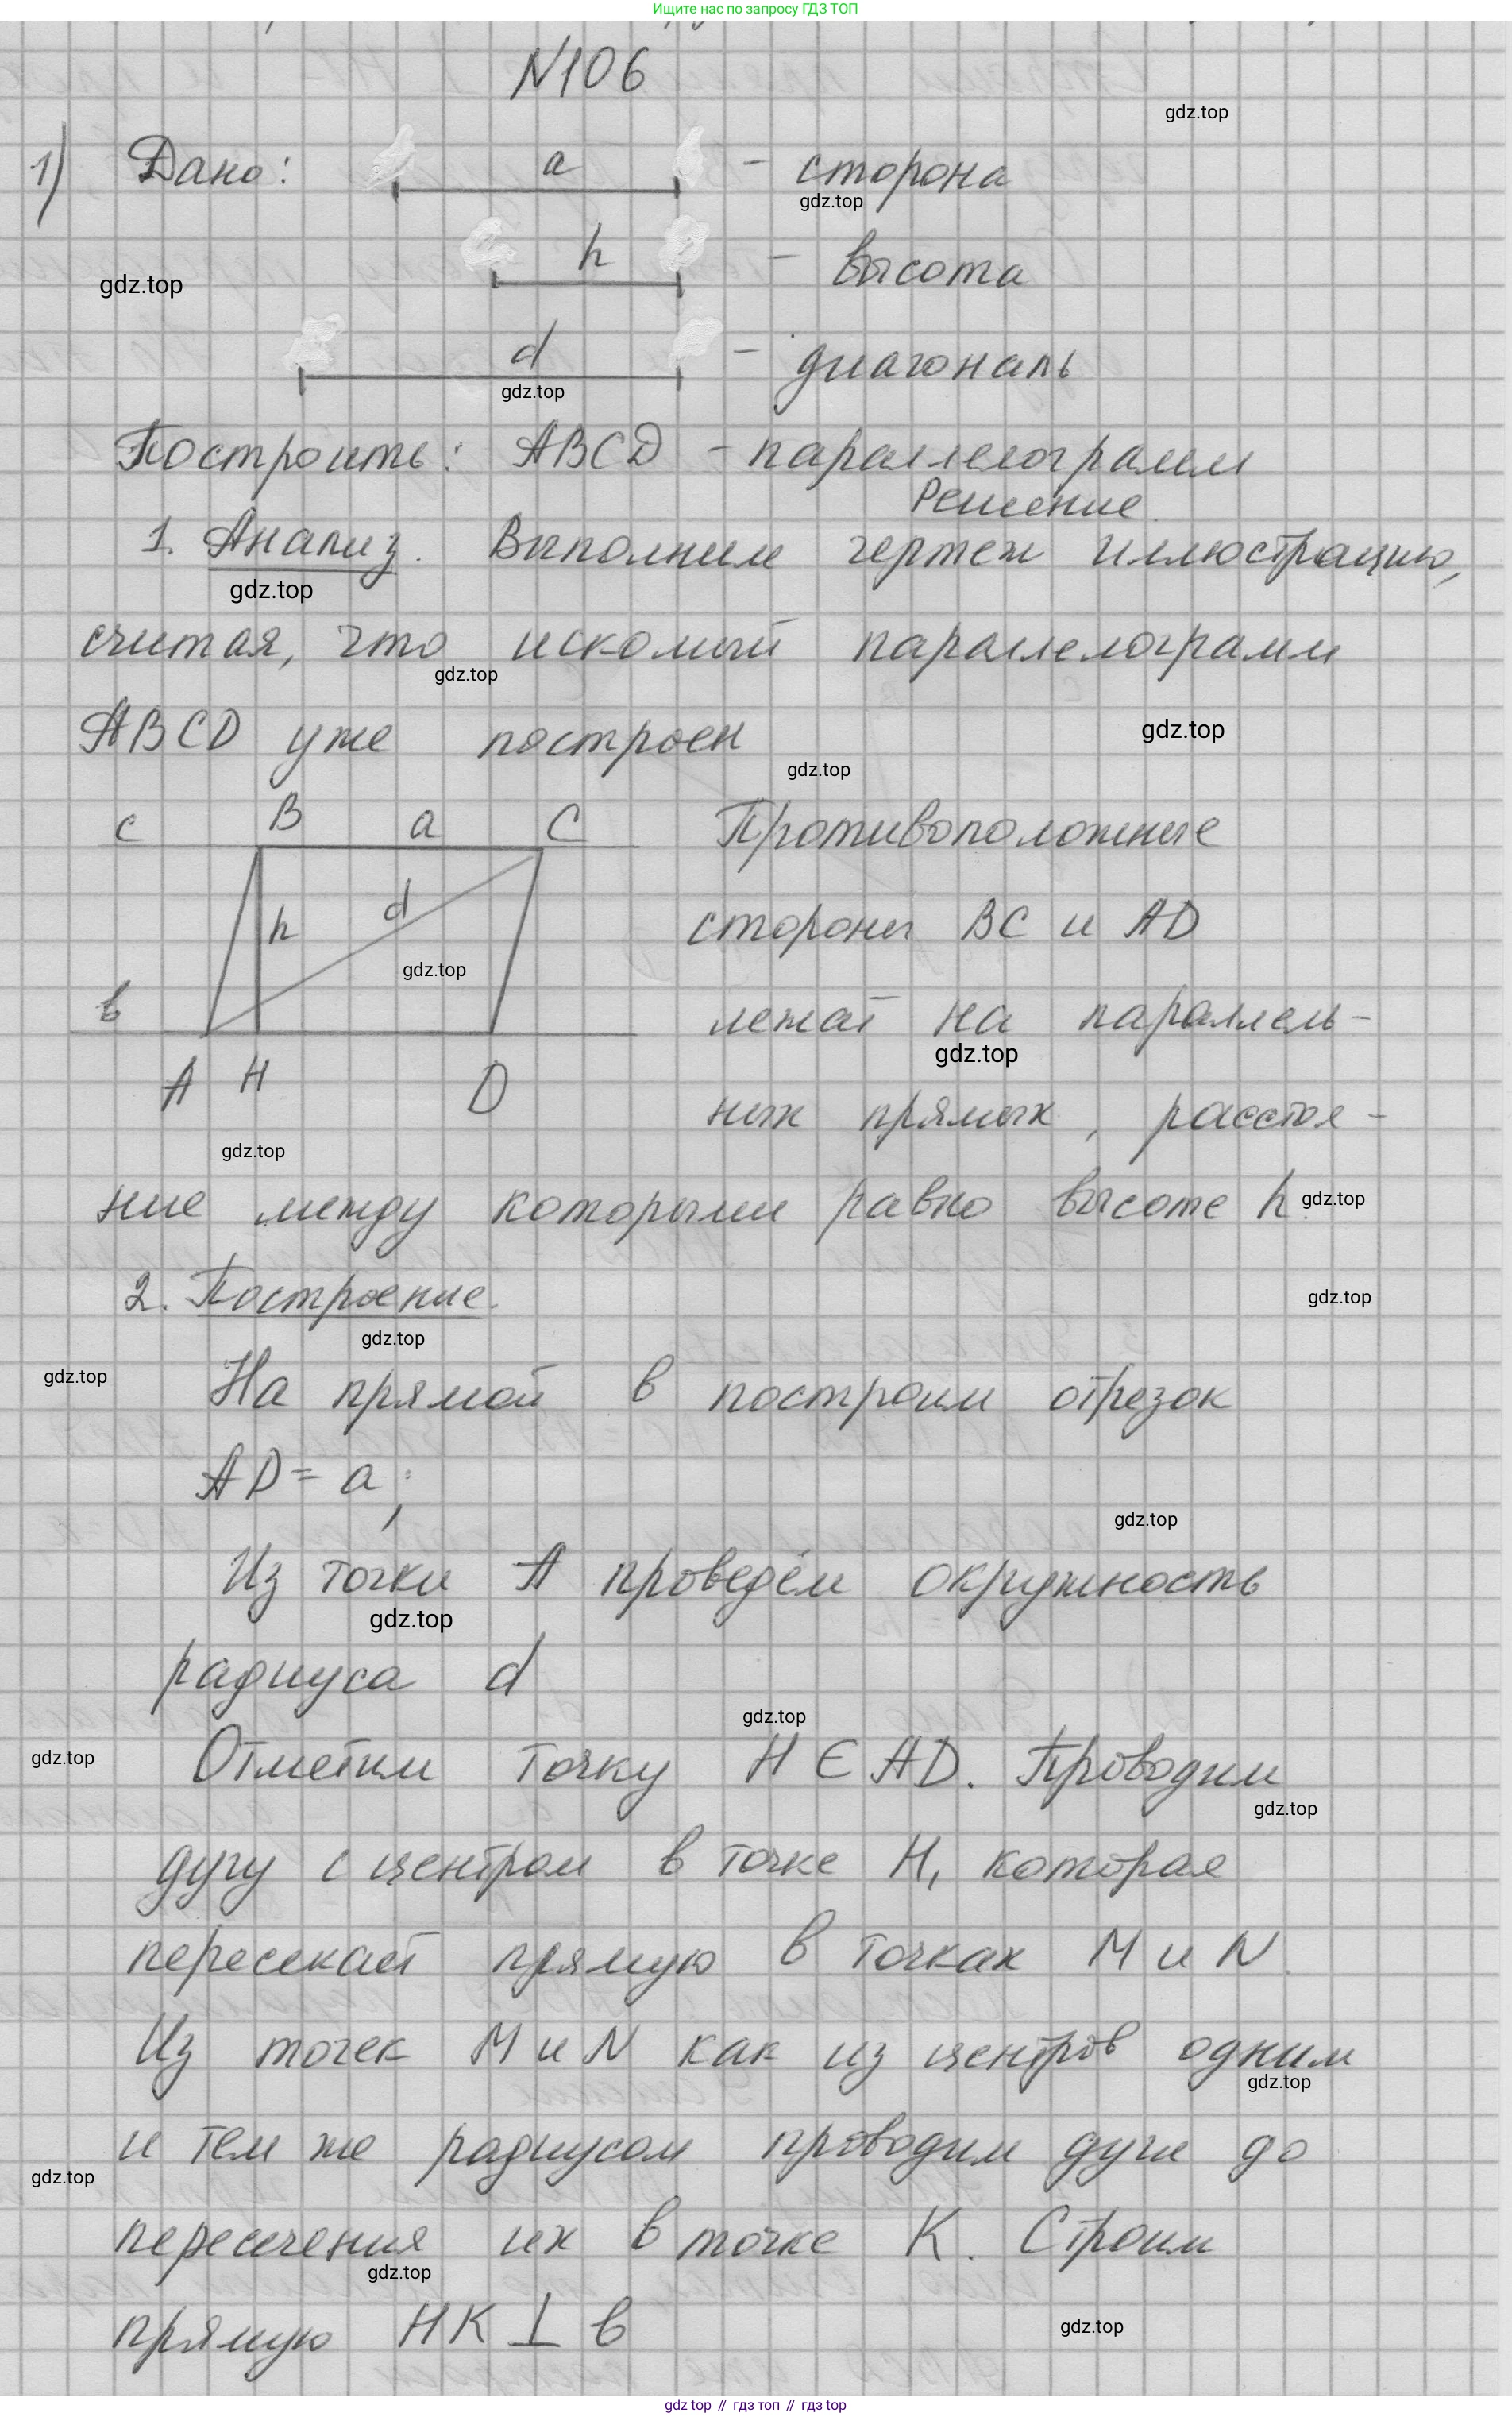 Ищите нас по запросу ГДЗ ТОП
N106
gdz.top
1) Дано: a - сторона
gdz.top
h - высота
gdz.top
d - диагональ
gdz.top
Построить: ABCD - параллелограмм
Решение.
1. Анализ. Выполним чертеж иллюстрацию,
gdz.top
считая, что искомый параллелограмм
gdz.top
ABCD уже построен
gdz.top
gdz.top
c B a C Противоположные
h d стороны BC и AD
gdz.top
в лежат на параллель-
gdz.top
A H D
ных прямых, расстоя-
gdz.top
ние между которыми равно высоте h.
gdz.top
2. Построение.
gdz.top
gdz.top
gdz.top
На прямой в построим отрезок
AD = a;
gdz.top
Из точки A проведём окружность
gdz.top
радиуса d
gdz.top
gdz.top
Отметим точку H ∈ AD. Проводим
gdz.top
дугу с центром в точке H, которая
пересекает прямую в точках M и N.
Из точек M и N как из центров одним
gdz.top
и тем же радиусом проводим дуги до
gdz.top
пересечения их в точке K. Строим
gdz.top
прямую HK ⊥ в
gdz.top
gdz top // гдз топ // гдз top